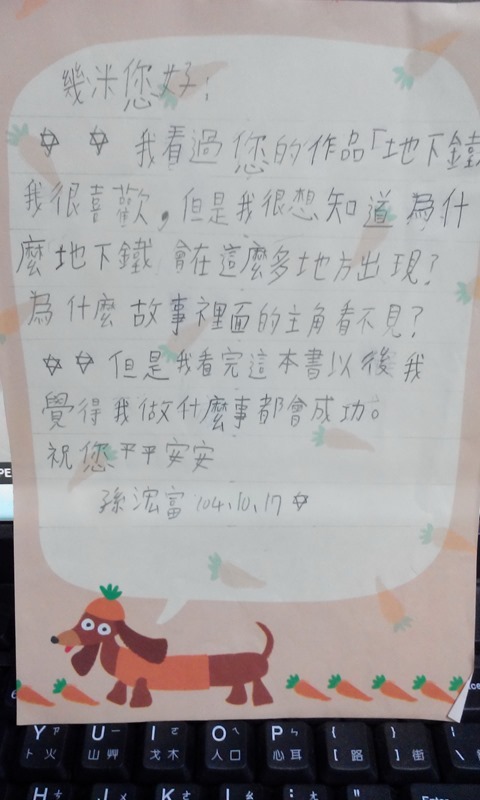 幾米您好：
✡ ✡ 我看過您的作品「地下鐵
我很喜歡，但是我很想知道為什
麼地下鐵會在這麼多地方出現？
為什麼故事裡面的主角看不見？
✡ ✡ 但是我看完這本書以後我
覺得我做什麼事都會成功。
祝您平平安安
孫浤富 104.10.17 ✡
Y ㄗ 卜 火
U ㄧ 山 艸
I ㄛ 戈 木
O ㄟ 人 口
P ㄣ 心 耳
{ [ 路
} ] 街
H
J
K
L